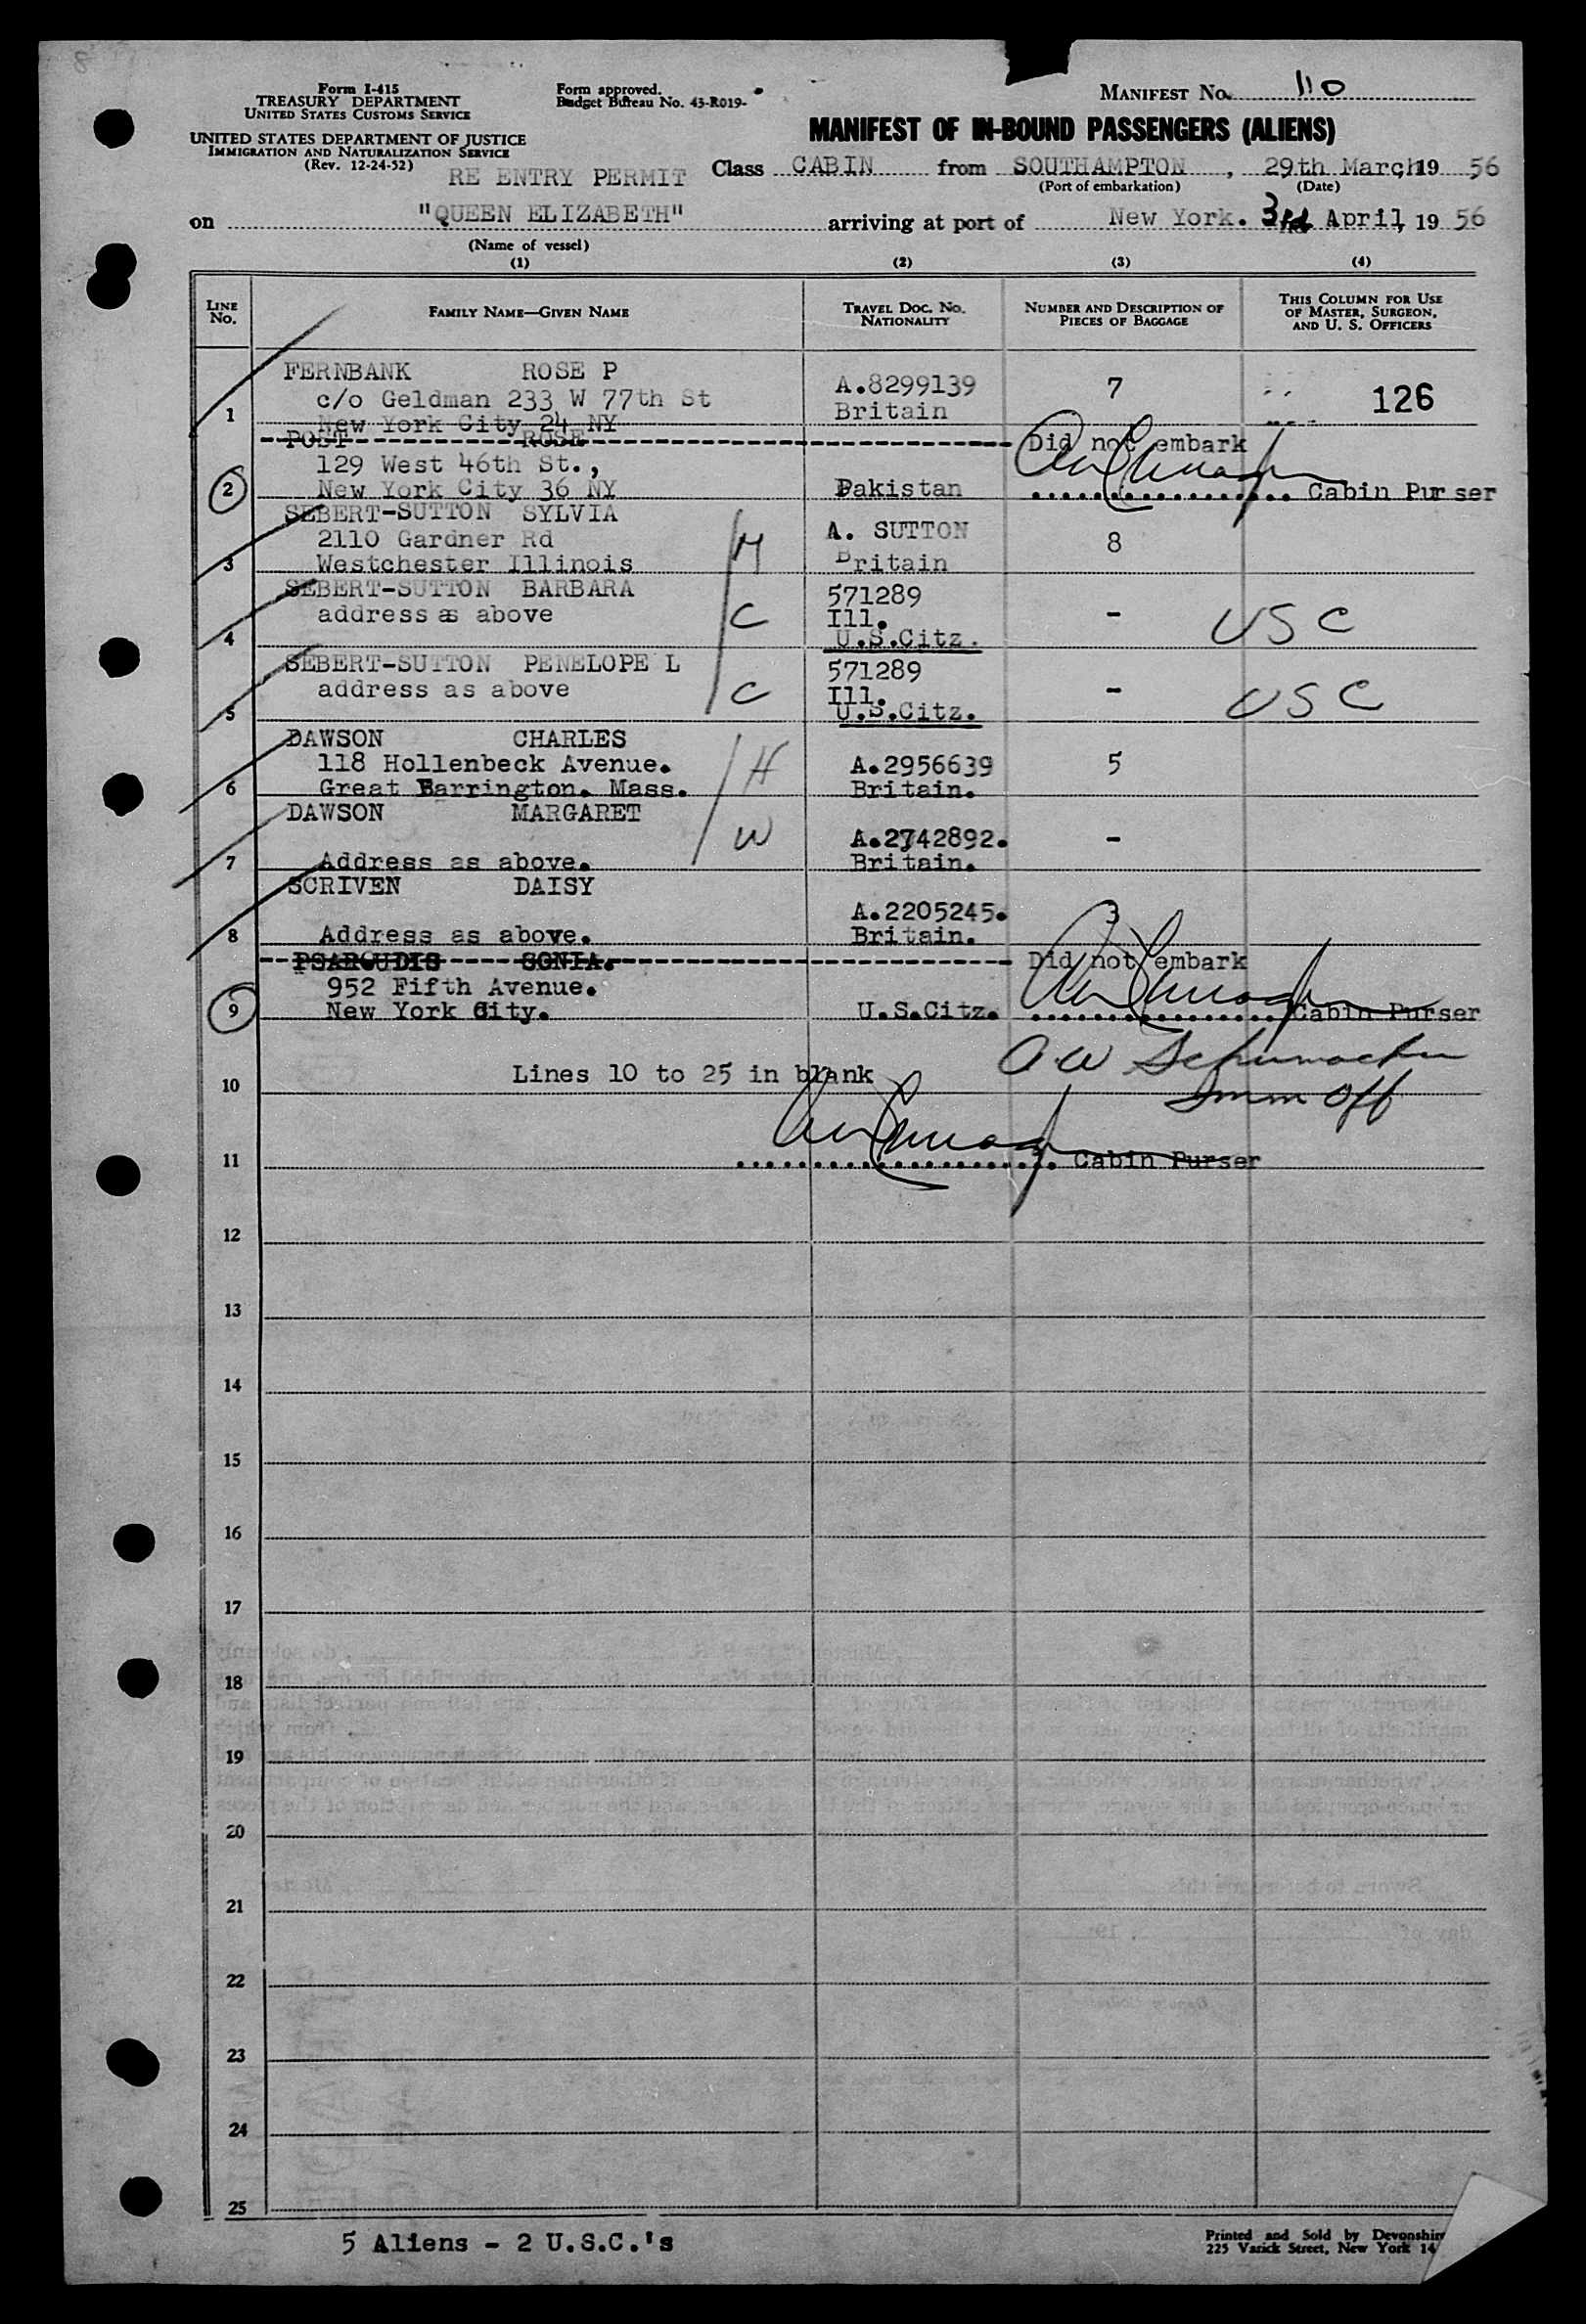 8
Form I-415
TREASURY DEPARTMENT
UNITED STATES CUSTOMS SERVICE
UNITED STATES DEPARTMENT OF JUSTICE
IMMIGRATION AND NATURALIZATION SERVICE
(Rev. 12-24-52)
Form approved.
Budget Bureau No. 43-R019-
MANIFEST No. 110
MANIFEST OF IN-BOUND PASSENGERS (ALIENS)
RE ENTRY PERMIT Class CABIN from SOUTHAMPTON, 29th March, 19 56
(Port of embarkation) (Date)
on "QUEEN ELIZABETH" arriving at port of New York. 3rd April, 19 56
(Name of vessel)
(1) (2) (3) (4)
LINE No. FAMILY NAME—GIVEN NAME TRAVEL DOC. No. NATIONALITY NUMBER AND DESCRIPTION OF PIECES OF BAGGAGE THIS COLUMN FOR USE OF MASTER, SURGEON, AND U. S. OFFICERS
FERNBANK ROSE P
c/o Geldman 233 W 77th St A.8299139 7 126
1 New York City 24 NY Britain
POST ROSE Did not embark
129 West 46th St.,
2 New York City 36 NY Pakistan Cabin Purser
SEBERT-SUTTON SYLVIA A. SUTTON
2110 Gardner Rd M 8
3 Westchester Illinois Britain
SEBERT-SUTTON BARBARA 571289
address as above C Ill. - USC
4 U.S.Citz.
SEBERT-SUTTON PENELOPE L 571289
address as above C Ill. - USC
5 U.S.Citz.
DAWSON CHARLES
118 Hollenbeck Avenue. H A.2956639 5
6 Great Barrington. Mass. Britain.
DAWSON MARGARET
W A.2742892. -
7 Address as above. Britain.
SCRIVEN DAISY
A.2205245. 3
8 Address as above. Britain.
PSAROUDIS SONIA. Did not embark
952 Fifth Avenue.
9 New York City. U.S.Citz. Cabin Purser
Lines 10 to 25 in blank A W Schumacher
10 Imm Off
11 Cabin Purser
12
13
14
15
16
17
18
19
20
21
22
23
24
25
5 Aliens - 2 U.S.C.'s
Printed and Sold by Devonshire
225 Varick Street, New York 14